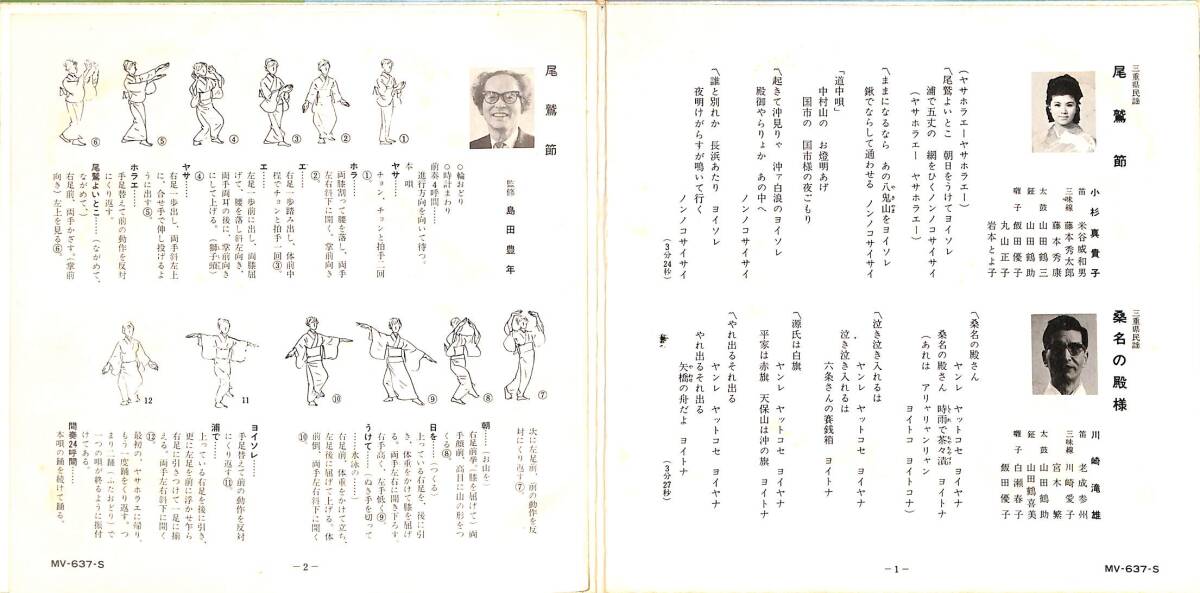 三重県民謡
尾鷲節
小杉真貴子
笛 米谷威和男
三味線 藤本秀太郎
藤本秀康
太鼓 山田鶴三
鉦 山田鶴助
囃子 飯田優子
丸山正子
岩本とよ子
(ヤサホラエーヤサホラエー)
〽尾鷲よいとこ 朝日をうけてヨイソレ
浦で五丈の 網をひくノンノコサイサイ
(ヤサホラエー ヤサホラエー)
〽ままになるなら あの八鬼山をヨイソレ
鍬でならして通わせる ノンノコサイサイ
「道中唄」
中村山の お燈明あげ
国市の 国市様の夜ごもり
〽起きて沖見りゃ 沖ァ白浪のヨイソレ
殿御やらりょか あの中へ
ノンノコサイサイ
〽誰と別れか 長浜あたり ヨイソレ
夜明けがらすが鳴いて行く
ノンノコサイサイ
(3分24秒)
三重県民謡
桑名の殿様
川崎滝雄
笛 老成参州
三味線 川崎愛子
宮本繁
太鼓 山田鶴助
鉦 山田鶴喜美
囃子 白瀬春子
飯田優子
〽桑名の殿さん
ヤンレ ヤットコセ ヨイヤナ
桑名の殿さん 時雨で茶々漬
ヨイトナ
(あれは アリャリャンリャン
ヨイトコ ヨイトコナ)
〽泣き泣き入れるは
ヤンレ ヤットコセ ヨイヤナ
泣き泣き入れるは
六条さんの賽銭箱
ヨイトナ
〽源氏は白旗
ヤンレ ヤットコセ ヨイヤナ
平家は赤旗 天保山は沖の旗 ヨイトナ
〽やれ出るそれ出る
ヤンレ ヤットコセ ヨイヤナ
やれ出るそれ出る
矢橋の舟だよ ヨイトナ
(3分27秒)
-1-
MV-637-S
尾鷲節
監修 島田豊年
○輪おどり
○時計まわり
前奏4呼間……
進行方向を向いて待つ。
本唄
ヤサ……
チョン、チョンと拍手二回
①。
ホラ……
両膝割って腰を落し、両手
左右斜下に開く。掌前向き
②。
エ……
右足一歩踏み出し、体前中
程でチョンと拍手一回③。
エ……
左足一歩前に出し、両膝屈
げて、腰を落し斜左向き、
両手両耳の後に、掌前向き
にして上げる。(獅子頭)
④
ヤサ……
右足一歩出し、両手斜左上
に、合せ手で伸し投げるよ
うに出す⑤。
ホラエ……
手足替えて前の動作を反対
にくり返す。
尾鷲よいとこ……(ながめて、
ながめて、)
右足前、両手かざす。(掌前
向き)左上を見る⑥。
①
②
③
④
⑤
⑥
次に左足前、前の動作を反
対にくり返す⑦。
朝……(お山を)
右足前拳(膝を屈げて)両
手顔前、高目に山の形をつ
くる⑧
日を……(つくる)
上っている右足を、後に引
き、体重をかけて膝を屈げ
る。両手左右に開き下ろす。
右手高く、左手低く⑨
うけて……(ぬき手を切って
……水泳の……)
右足前、体重をかけて立ち、
左足後に屈げて上げる。体
前倒、両手左右斜下に開く
⑩
ヨイソレ……
手足替えて前の動作を反対
にくり返す⑪
浦で……
上っている右足を後に引き、
更に左足を前に浮かせ乍ら
右足に引きつけて一足に揃
える。両手左右斜下に開く
⑫
最初の、ヤサホラエに帰り、
もう一度踊をくり返す。つ
まり二踊(ふたおどり)で
一つの唄が終るように振付
けてある。
間奏24呼間……
本唄の踊を続けて踊る。
⑦
⑧
⑨
⑩
11
12
-2-
MV-637-S